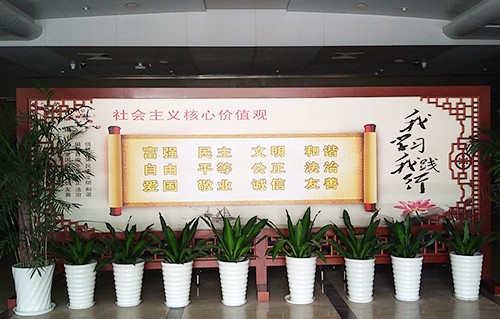 社会主义核心价值观
富强 民主 文明 和谐
自由 平等 公正 法治
爱国 敬业 诚信 友善
我学习
我践行
和谐
法治
友善